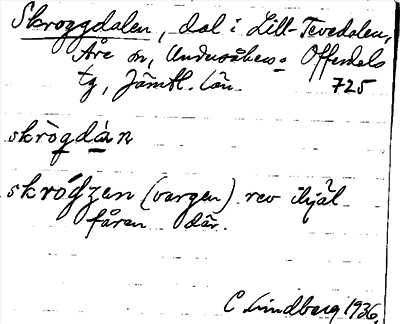 Skroggdalen, dal i Lill-Tevedalen,
Åre sn, Undersåkers o Offerdals
tg, Jämtl. län. 725
skrògdàn
skrógzen (vargen) rev ihjäl
fåren där.
C. Lindberg 1936.